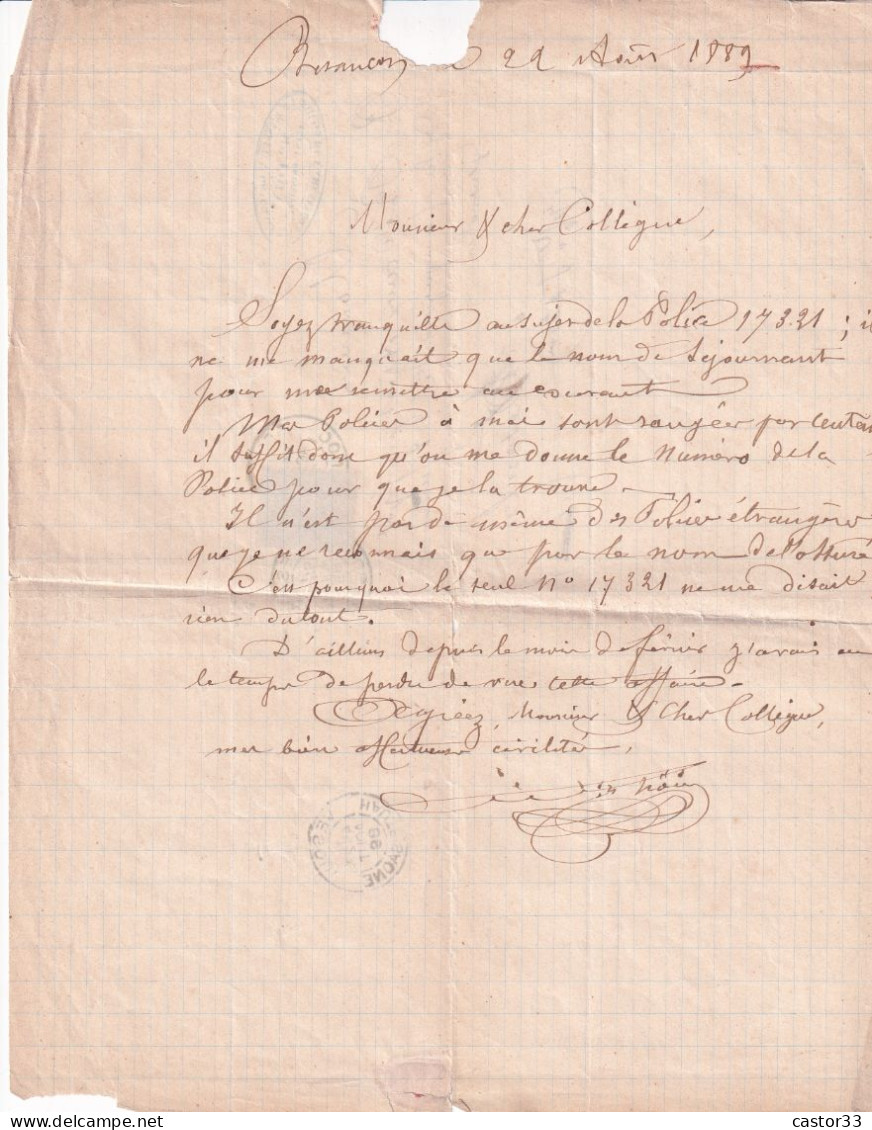 Besançon le 22 Août 1889
Monsieur & cher Collègue,
Soyez tranquille au sujet de la Police 17321 ; il
ne me manquait que le nom de Séjournant
pour me remettre au courant
Mes Polices à moi sont rangées par centaine
il suffit donc qu'on me donne le Numéro de la
Police pour que je la trouve –
Il n'est pas de même des Polices étrangères
que je ne reconnais que par le nom de l'assuré
C'est pourquoi le seul No 17321 ne me disait
rien du tout.
D'ailleurs depuis le mois de février j'avais eu
le temps de perdre de vue cette affaire –
Agréez, Monsieur & Cher Collègue,
mes bien affectueuses civilités,
castor33